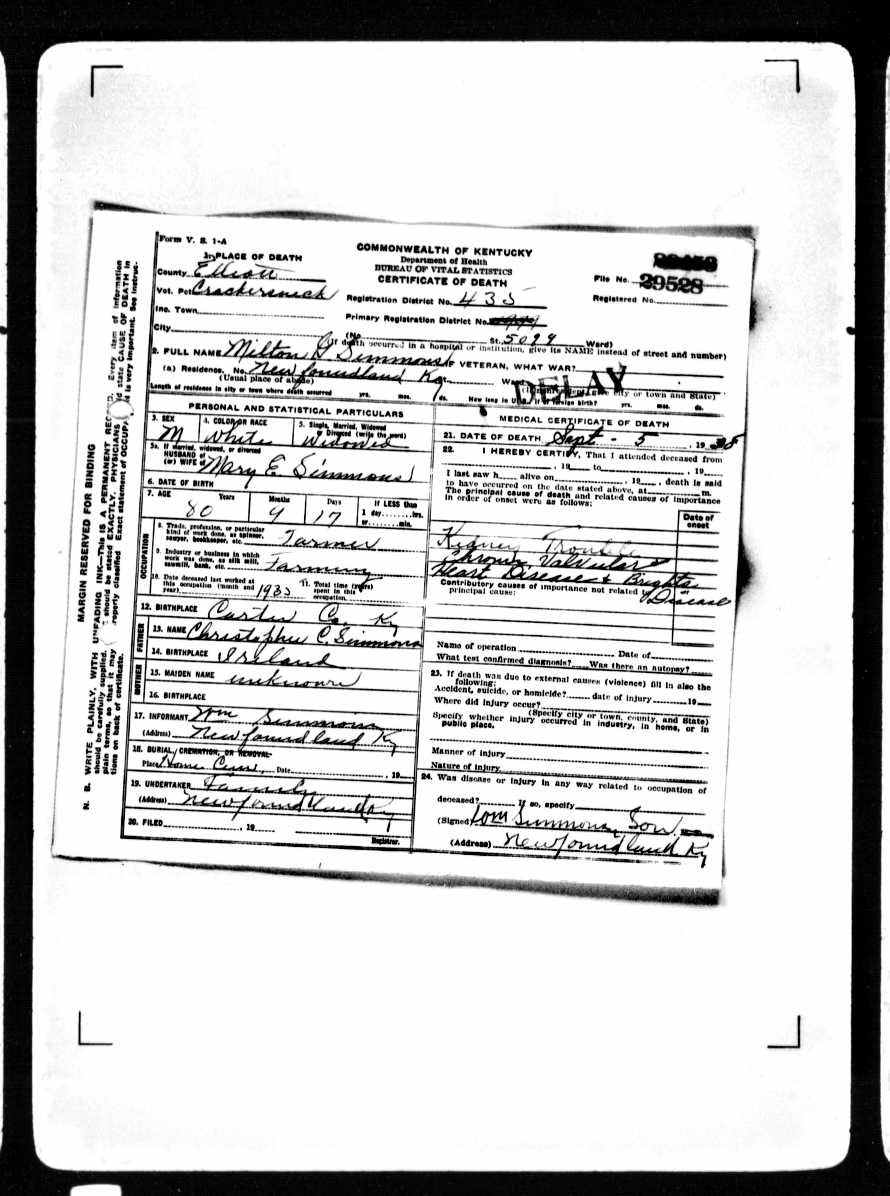 Form V. S. 1-A
COMMONWEALTH OF KENTUCKY
Department of Health
BUREAU OF VITAL STATISTICS
CERTIFICATE OF DEATH
1. PLACE OF DEATH
County Elliott
Vot. Pct
Inc. Town
City
Registration District No. 435
Primary Registration District No.
File No. 29528
Registered No.
(No. St. 5099 Ward)
(If death occurred in a hospital or institution, give its NAME instead of street and number)
2. FULL NAME Milton Simmons IF VETERAN, WHAT WAR?
(a) Residence. No. Newfoundland Ky
(Usual place of abode)
DELAY
city or town and State)
Length of residence in city or town where death occurred yrs. mos. ds. How long in U.S., if of foreign birth? yrs. mos. ds.
PERSONAL AND STATISTICAL PARTICULARS
3. SEX M
4. COLOR OR RACE White
5. Single, Married, Widowed or Divorced (write the word) Widowed
5a. If married, widowed, or divorced
HUSBAND of
(or) WIFE of Mary E Simmons
6. DATE OF BIRTH
7. AGE Years 80 Months 9 Days 17 If LESS than 1 day........hrs. or........min.
OCCUPATION
8. Trade, profession, or particular
kind of work done, as spinner,
sawyer, bookkeeper, etc. Farmer
9. Industry or business in which
work was done, as silk mill,
sawmill, bank, etc. Farming
10. Date deceased last worked at
this occupation (month and
year) 1935
11. Total time (years)
spent in this
occupation
12. BIRTHPLACE Carter Co. Ky
FATHER
13. NAME Christopher C. Simmons
14. BIRTHPLACE Ireland
MOTHER
15. MAIDEN NAME unknown
16. BIRTHPLACE
17. INFORMANT Simmons
(Address) Newfoundland Ky
18. BURIAL, CREMATION, OR REMOVAL
Place Home Cem. Date , 19
19. UNDERTAKER Family
(Address) Newfoundland Ky
20. FILED , 19
Registrar.
MEDICAL CERTIFICATE OF DEATH
21. DATE OF DEATH Sept - 5, 19
22. I HEREBY CERTIFY, That I attended deceased from
, 19 to , 19
I last saw h alive on , 19 , death is said
to have occurred on the date stated above, at m.
The principal cause of death and related causes of importance
in order of onset were as follows:
Date of onset
Kidney Trouble
Chronic Valvular
Heart Disease & Brights
Disease
Contributory causes of importance not related to
principal cause:
Name of operation Date of
What test confirmed diagnosis? Was there an autopsy?
23. If death was due to external causes (violence) fill in also the
following:
Accident, suicide, or homicide? date of injury 19
Where did injury occur?
(Specify city or town, county, and State)
Specify whether injury occurred in industry, in home, or in
public place.
Manner of injury
Nature of injury
24. Was disease or injury in any way related to occupation of
deceased? If so, specify
(Signed) Simmons, Son
(Address) Newfoundland Ky
MARGIN RESERVED FOR BINDING
N. B. WRITE PLAINLY, WITH UNFADING INK—This is A PERMANENT RECORD. Every item of information
should be carefully supplied. should be stated EXACTLY. PHYSICIANS state CAUSE OF DEATH in
plain terms, so that it may properly classified. Exact statement of is very important. See instruc-
tions on back of certificate.